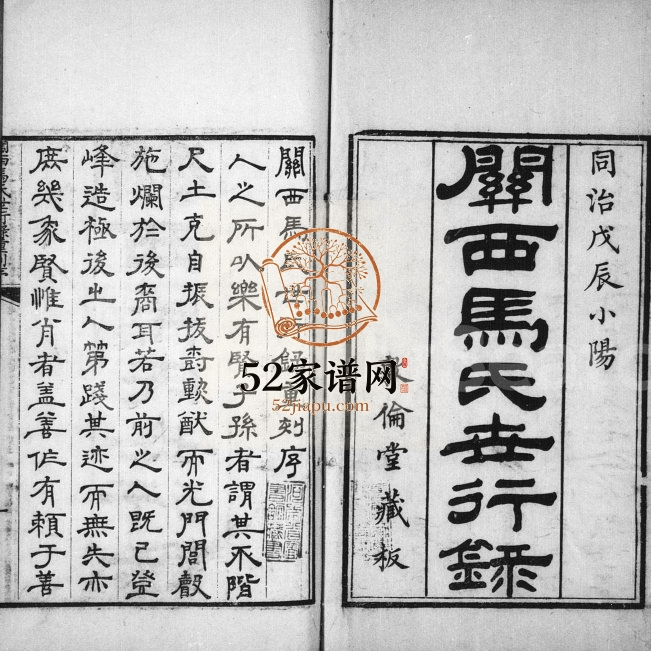 同治戊辰小陽
關西馬氏世行錄
倫堂藏板
關西馬氏世行錄重刻序
人之所以樂有賢子孫者謂其不階
尺土克自振拔樹勲猷而光門閭聲
施爛於後裔耳若乃前之人既已登
峰造極後之人第踐其迹而無失亦
庶幾象賢惟肖者蓋善作有賴于善
52家谱网
52jiapu.com